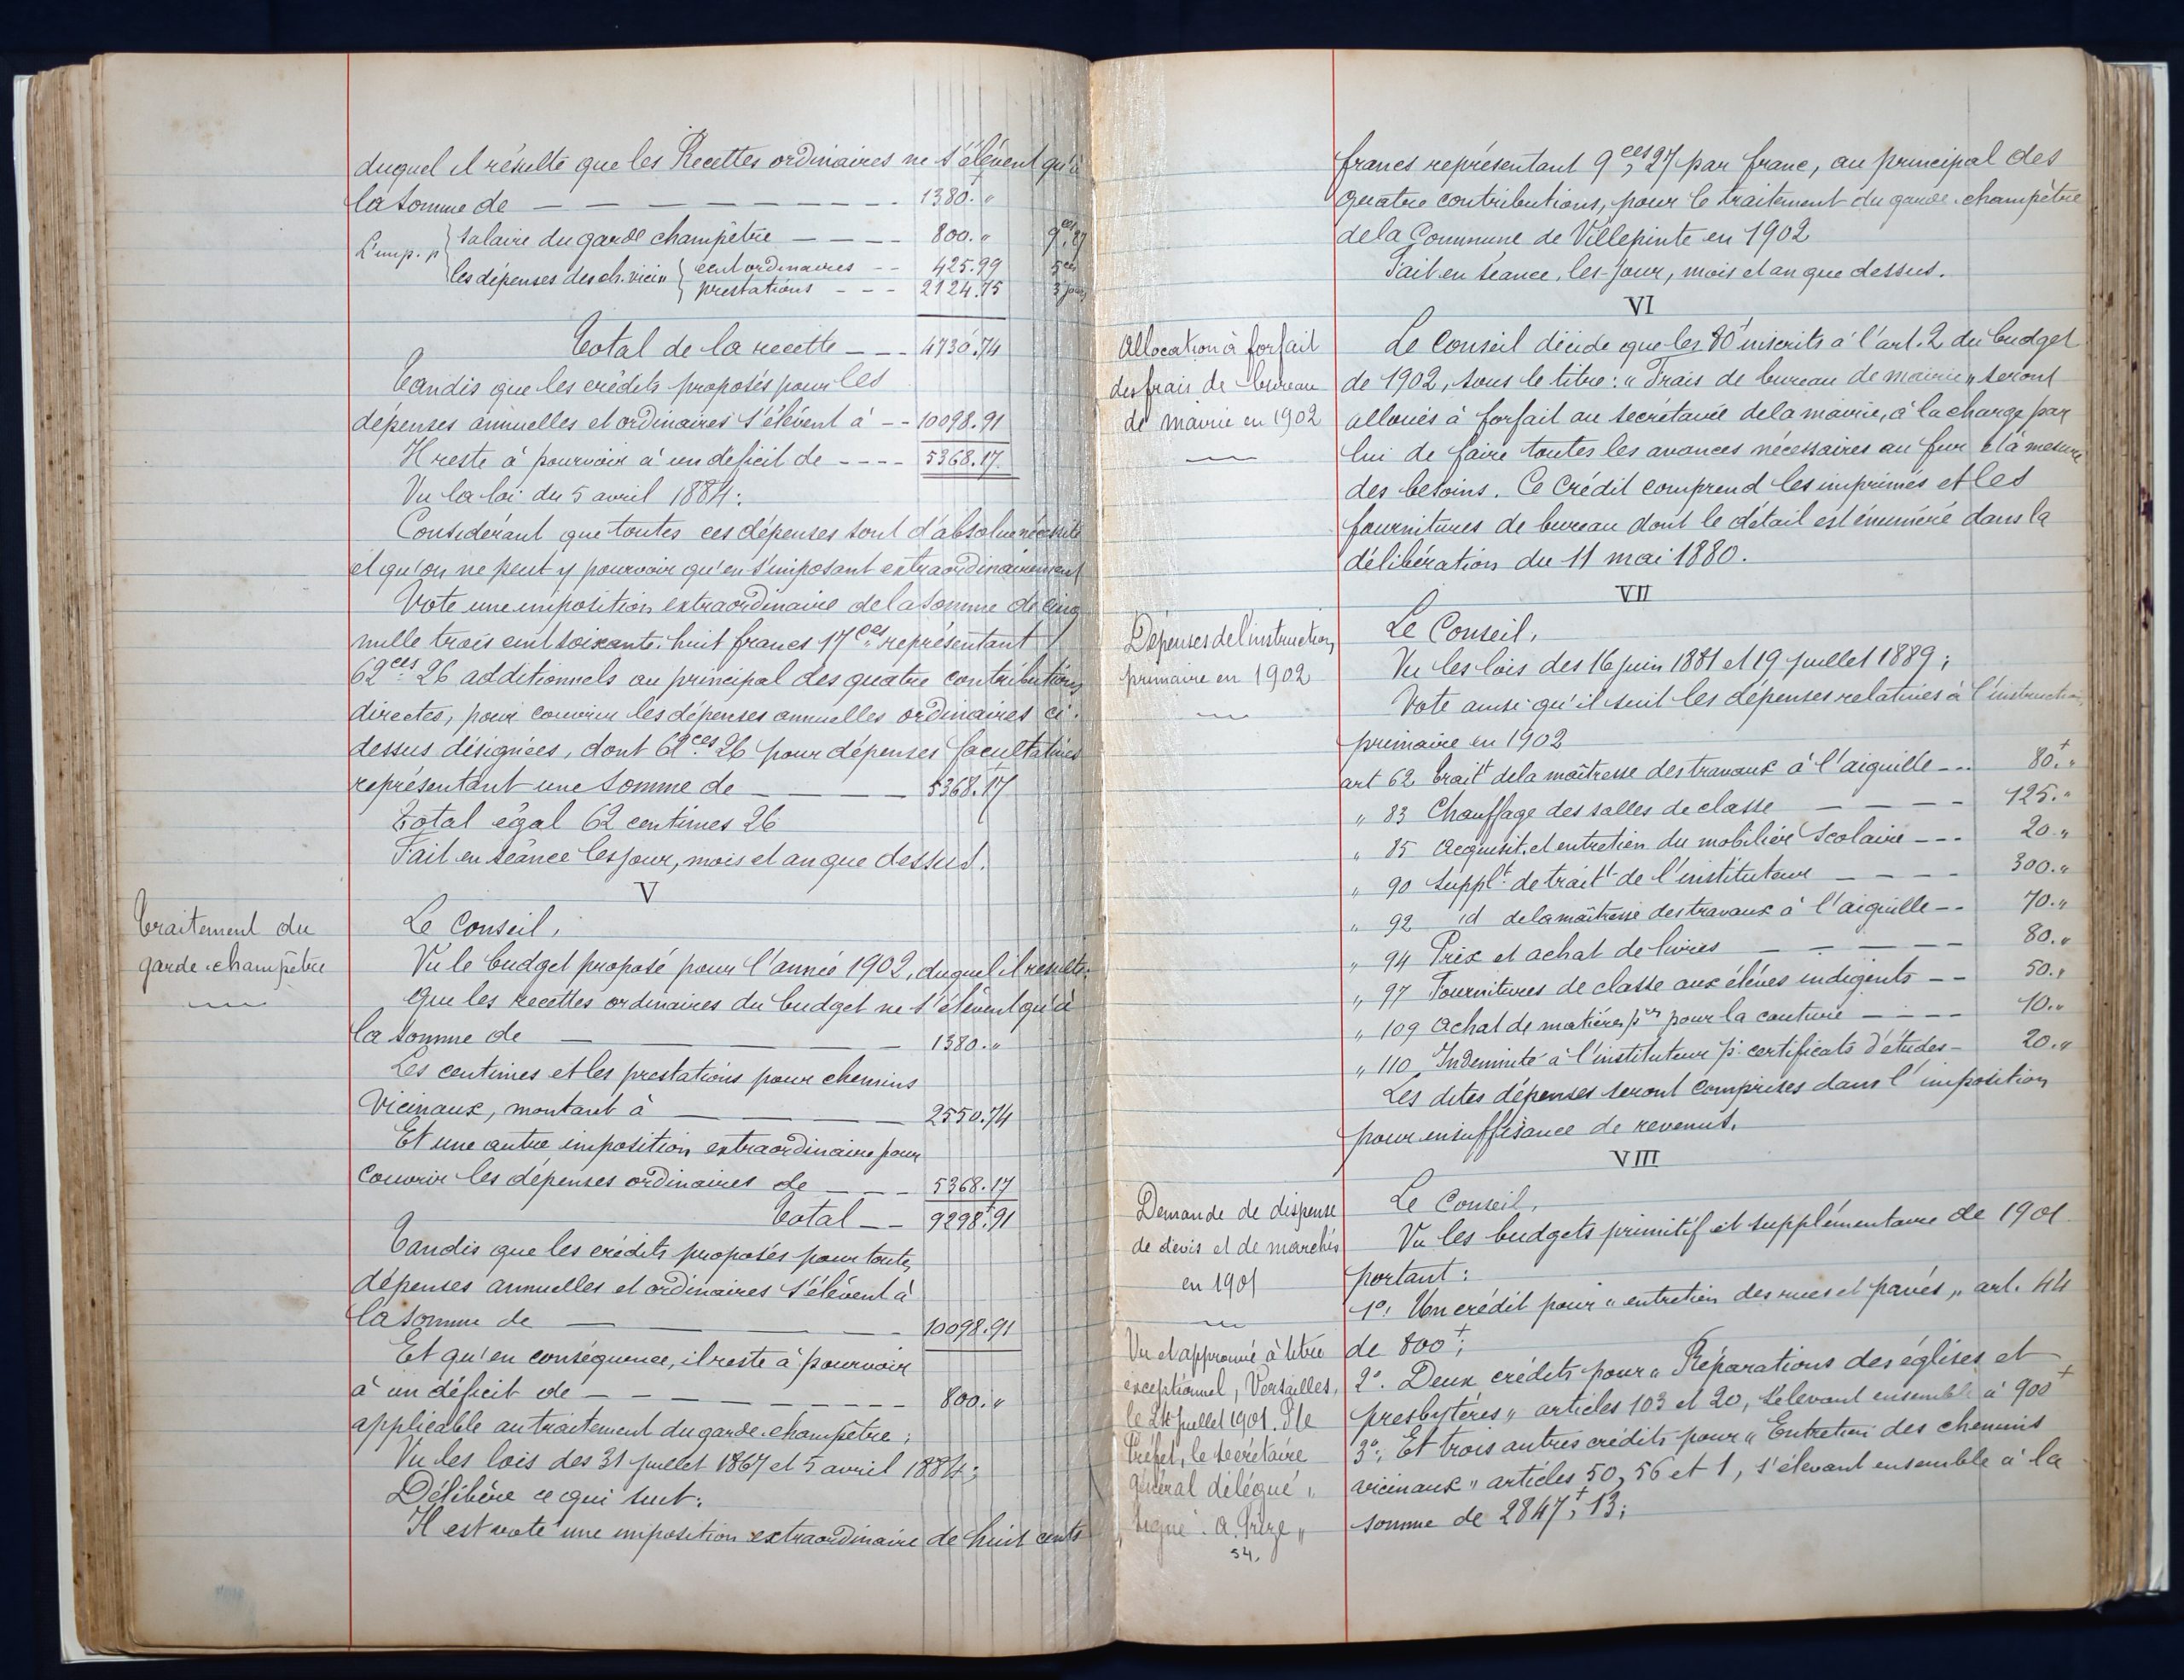 duquel il résulte que les Recettes ordinaires ne s'élèvent qu'à
la somme de — — — — — — — — — 1380. "
L'imp. p { Salaire du garde champêtre — — — — 800. " 9ces,27
les dépenses des ch. vicin { cent ordinaires - - 425.99 5ces
prestations - - - 2124.75 3 jours
Total de la recette - - - 4730.74
Tandis que les crédits proposés pour les
dépenses annuelles et ordinaires s'élèvent à - - 10098.91
Il reste à pourvoir à un déficit de - - - - 5368.17
Vu la loi du 5 avril 1884:
Considérant que toutes ces dépenses sont d'absolue nécessité
et qu'on ne peut y pourvoir qu'en s'imposant extraordinairement
Vote une imposition extraordinaire de la somme de cinq
mille trois cent soixante-huit francs 17ces représentant
62ces 26 additionnels au principal des quatre contributions
directes, pour couvrir les dépenses annuelles ordinaires ci-
dessus désignées, dont 62ces 26 pour dépenses facultatives
représentant une somme de — — — 5368f.17
Total égal 62 centimes 26
Fait en séance les jour, mois et an que dessus.
V
Traitement du
garde-champêtre
Le Conseil,
Vu le budget proposé pour l'année 1902, duquel il résulte:
Que les recettes ordinaires du budget ne s'élèvent qu'à
la somme de — — — 1380. "
Les centimes et les prestations pour chemins
Vicinaux, montant à — — — 2550.74
Et une autre imposition extraordinaire pour
couvrir les dépenses ordinaires de - - - 5368.17
Total - - 9298f.91
Tandis que les crédits proposés pour toutes
dépenses annuelles et ordinaires s'élèvent à
la somme de — — — 10098.91
Et qu'en conséquence, il reste à pourvoir
à un déficit de - - - - - - - - - 800. "
applicable au traitement du garde-champêtre;
Vu les lois des 31 juillet 1867 et 5 avril 1884;
Délibère ce qui suit:
Il est voté une imposition extraordinaire de huit cents
francs représentant 9ces,27 par franc, au principal des
quatre contributions, pour le traitement du garde-champêtre
de la Commune de Villepinte en 1902
Fait en séance, les jour, mois et an que dessus.
VI
Allocation à forfait
des frais de bureau
de mairie en 1902
Le Conseil décide que les 80f inscrits à l'art. 2 du budget
de 1902, sous le titre: "Frais de bureau de mairie" seront
alloués à forfait au secrétaire de la mairie, à la charge par
lui de faire toutes les avances nécessaires au fur et à mesure
des besoins. Ce Crédit comprend les imprimés et les
fournitures de bureau dont le détail est énuméré dans la
délibération du 11 mai 1880.
VII
Dépenses de l'instruction
primaire en 1902
Le Conseil,
Vu les lois des 16 juin 1881 et 19 juillet 1889;
Vote ainsi qu'il suit les dépenses relatives à l'instruction
primaire en 1902
art 62 Trait't de la maîtresse des travaux à l'aiguille - - - 80f. "
" 83 Chauffage des salles de classe — — — — 125. "
" 85 Acquisit. et entretien du mobilier scolaire - - - 20 "
" 90 Suppl't de trait't de l'instituteur — — — — 300. "
" 92 id de la maîtresse des travaux à l'aiguille - - 70. "
" 94 Prix et achat de livres — — — — — 80. "
" 97 Fournitures de classe aux élèves indigents - - 50. "
" 109 Achat de matières p'res pour la couture — — — — 10. "
" 110 Indemnité à l'instituteur p. certificats d'études - 20. "
Les dites dépenses seront comprises dans l'imposition
pour insuffisance de revenus.
VIII
Demande de dispense
de devis et de marchés
en 1901
Le Conseil,
Vu les budgets primitif et supplémentaire de 1901
portant:
1°. Un crédit pour "entretien des rues et pavés" art. 44
de 800f;
2°. Deux crédits pour "Réparations des églises et
presbytères" articles 103 et 20, s'élevant ensemble à 900f
3°. Et trois autres crédits pour "Entretien des chemins
vicinaux" articles 50, 56 et 1, s'élevant ensemble à la
somme de 2847f,13;
Vu et approuvé à titre
exceptionnel, Versailles,
le 24 juillet 1901. P. le
Préfet, le secrétaire
général délégué,
signé: A.
54.